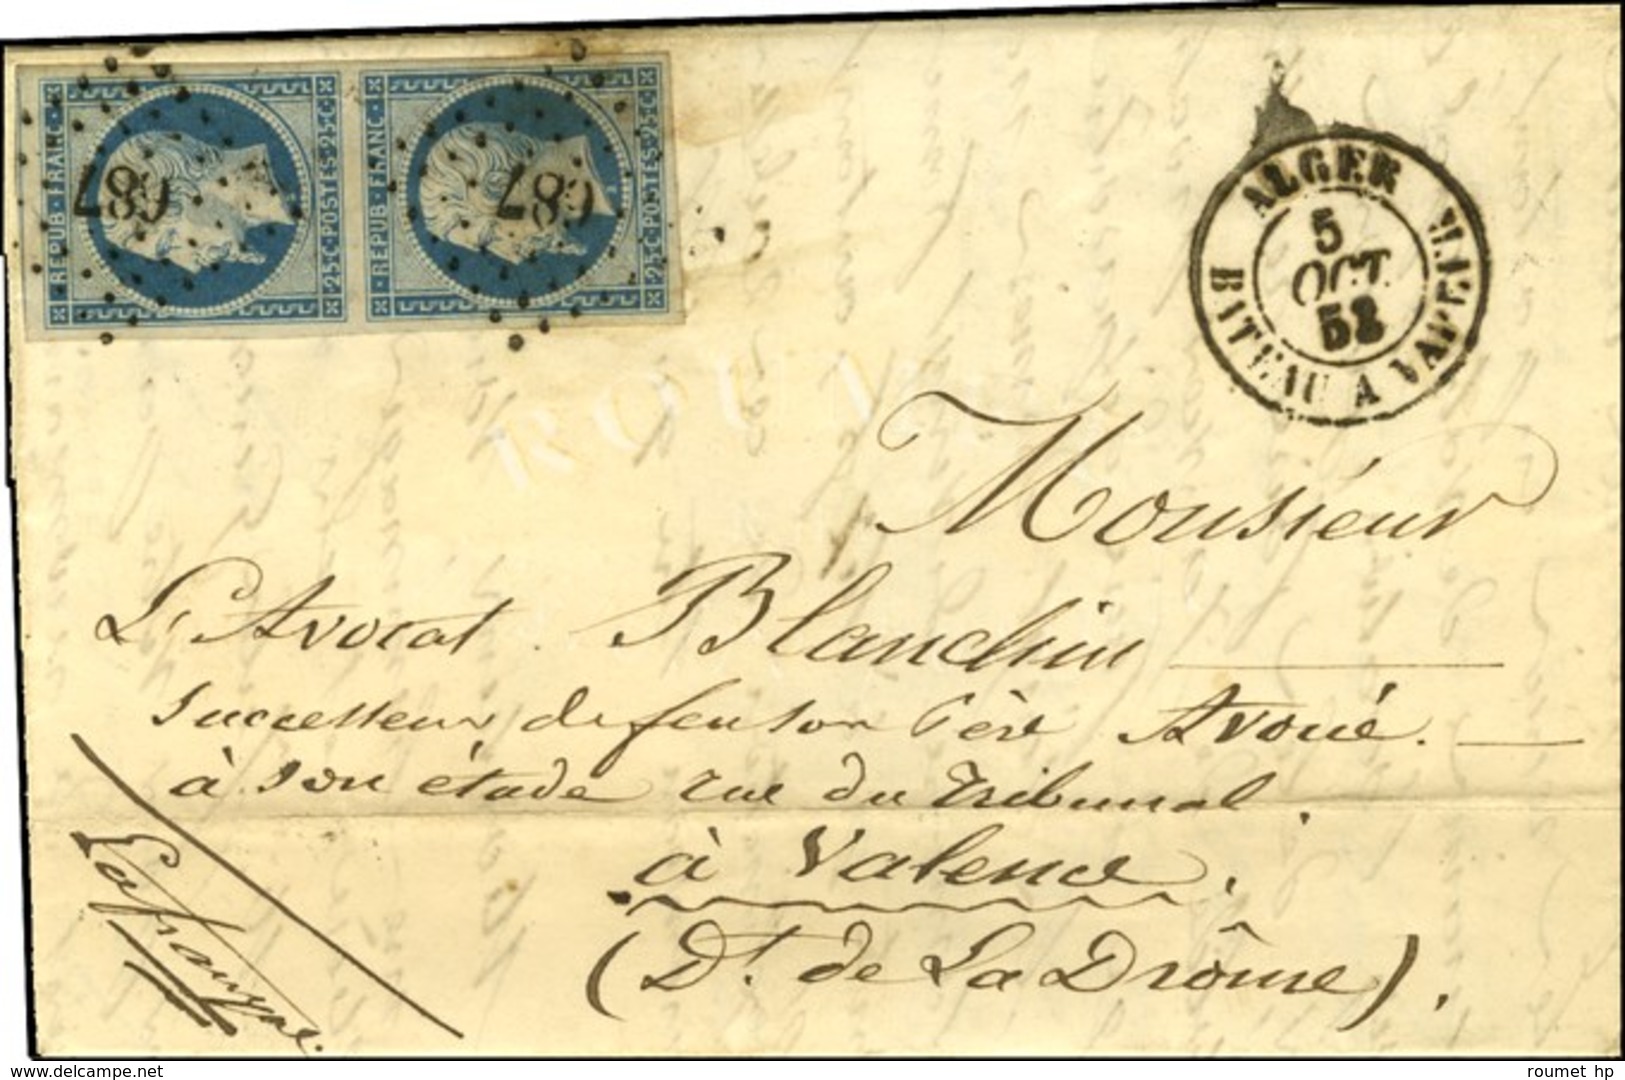 REPUB·FRANC· ·25·C·POSTES·25·C·
REPUB·FRANC· ·25·C·POSTES·25·C·
687
687
ALGER
BATEAU A VAPEUR
5
OCT.
52
ROUMET
Monsieur
L'Avocat Blanchin
Successeur de feu son Père Avoué.
à son étude rue du Tribunal.
à Valence.
(Dt. de La Drôme).
Delcampe.net
roumet hp